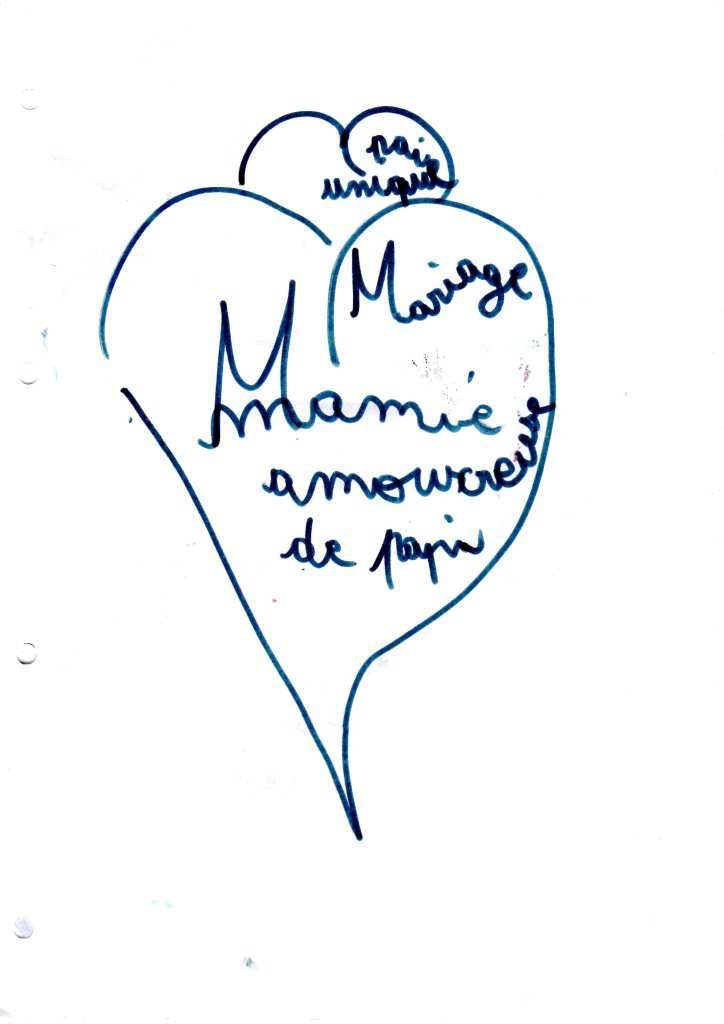 unique
Mariage
Mamie
amoureuse
de papi